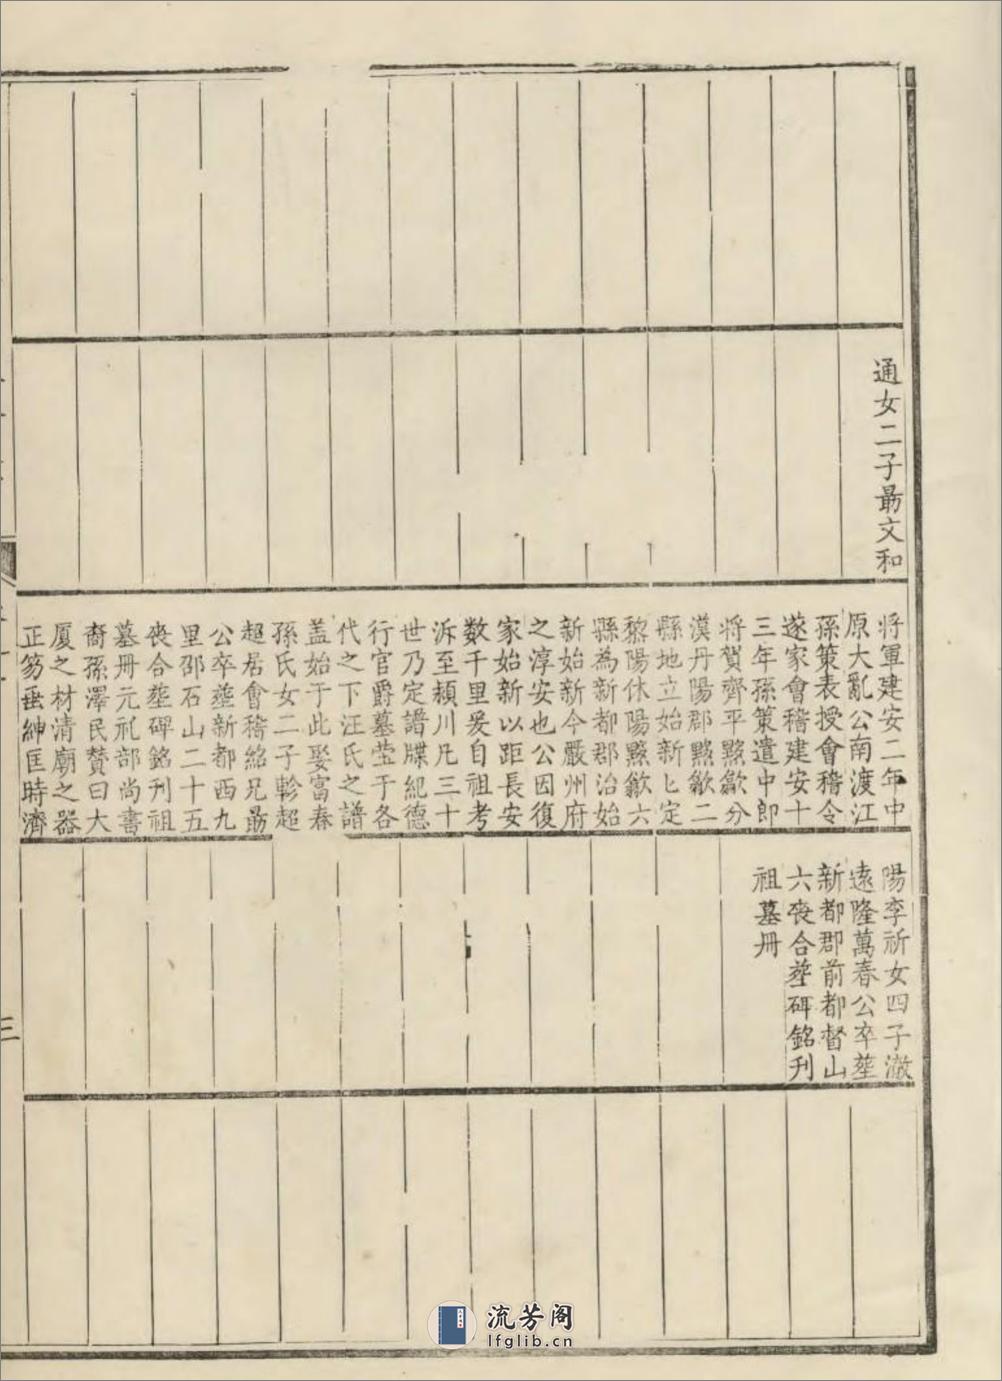 通女二子勗文和
将軍建安二年中
原大亂公南渡江
孫策表授會稽令
遂家會稽建安十
三年孫策遣中郎
将賀齊平黟歙分
漠丹陽郡黟歙二
縣地立始新匕定
黎陽休陽黟歙六
縣為新都郡治始
新始新今嚴州府
之淳安也公因復
家始新以距長安
数千里爰自祖考
泝至頴川凡三十
世乃定譜牒紀德
行官爵墓茔于各
代之下汪氏之譜
盖始于此娶富春
孫氏女二子軫超
超居會稽紹兄勗
公卒塟新都西九
里邵石山二十五
喪合塟碑銘刊祖
墓册元礼部尚書
裔孫澤民賛曰大
厦之材清廟之器
正笏垂紳匡時濟
陽李祈女四子澈
遠隆萬春公卒塟
新都郡前都督山
六喪合塟碑銘刋
祖墓册
三
流芳阁
lfglib.cn